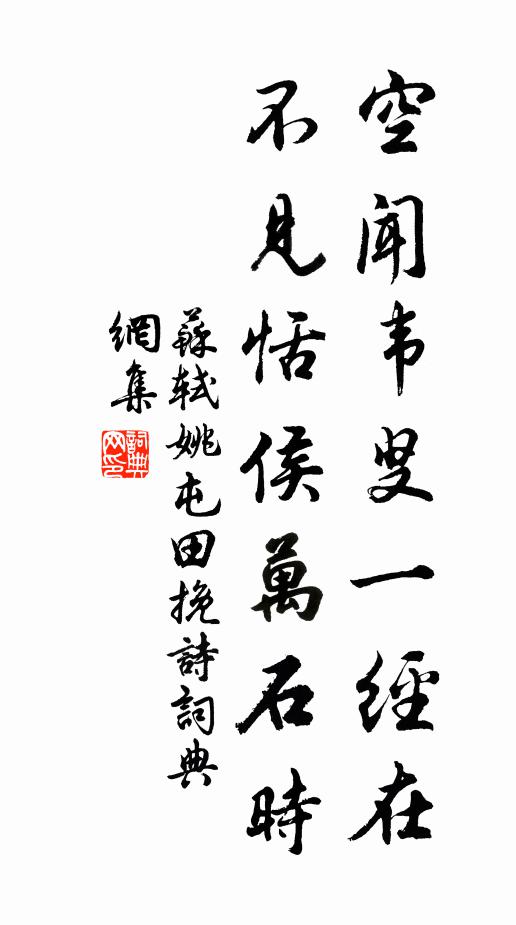 空聞韦叟一經在
不見恬侯萬石時
蘇轼姚屯田挽詩詞典
網集
詞典
网印